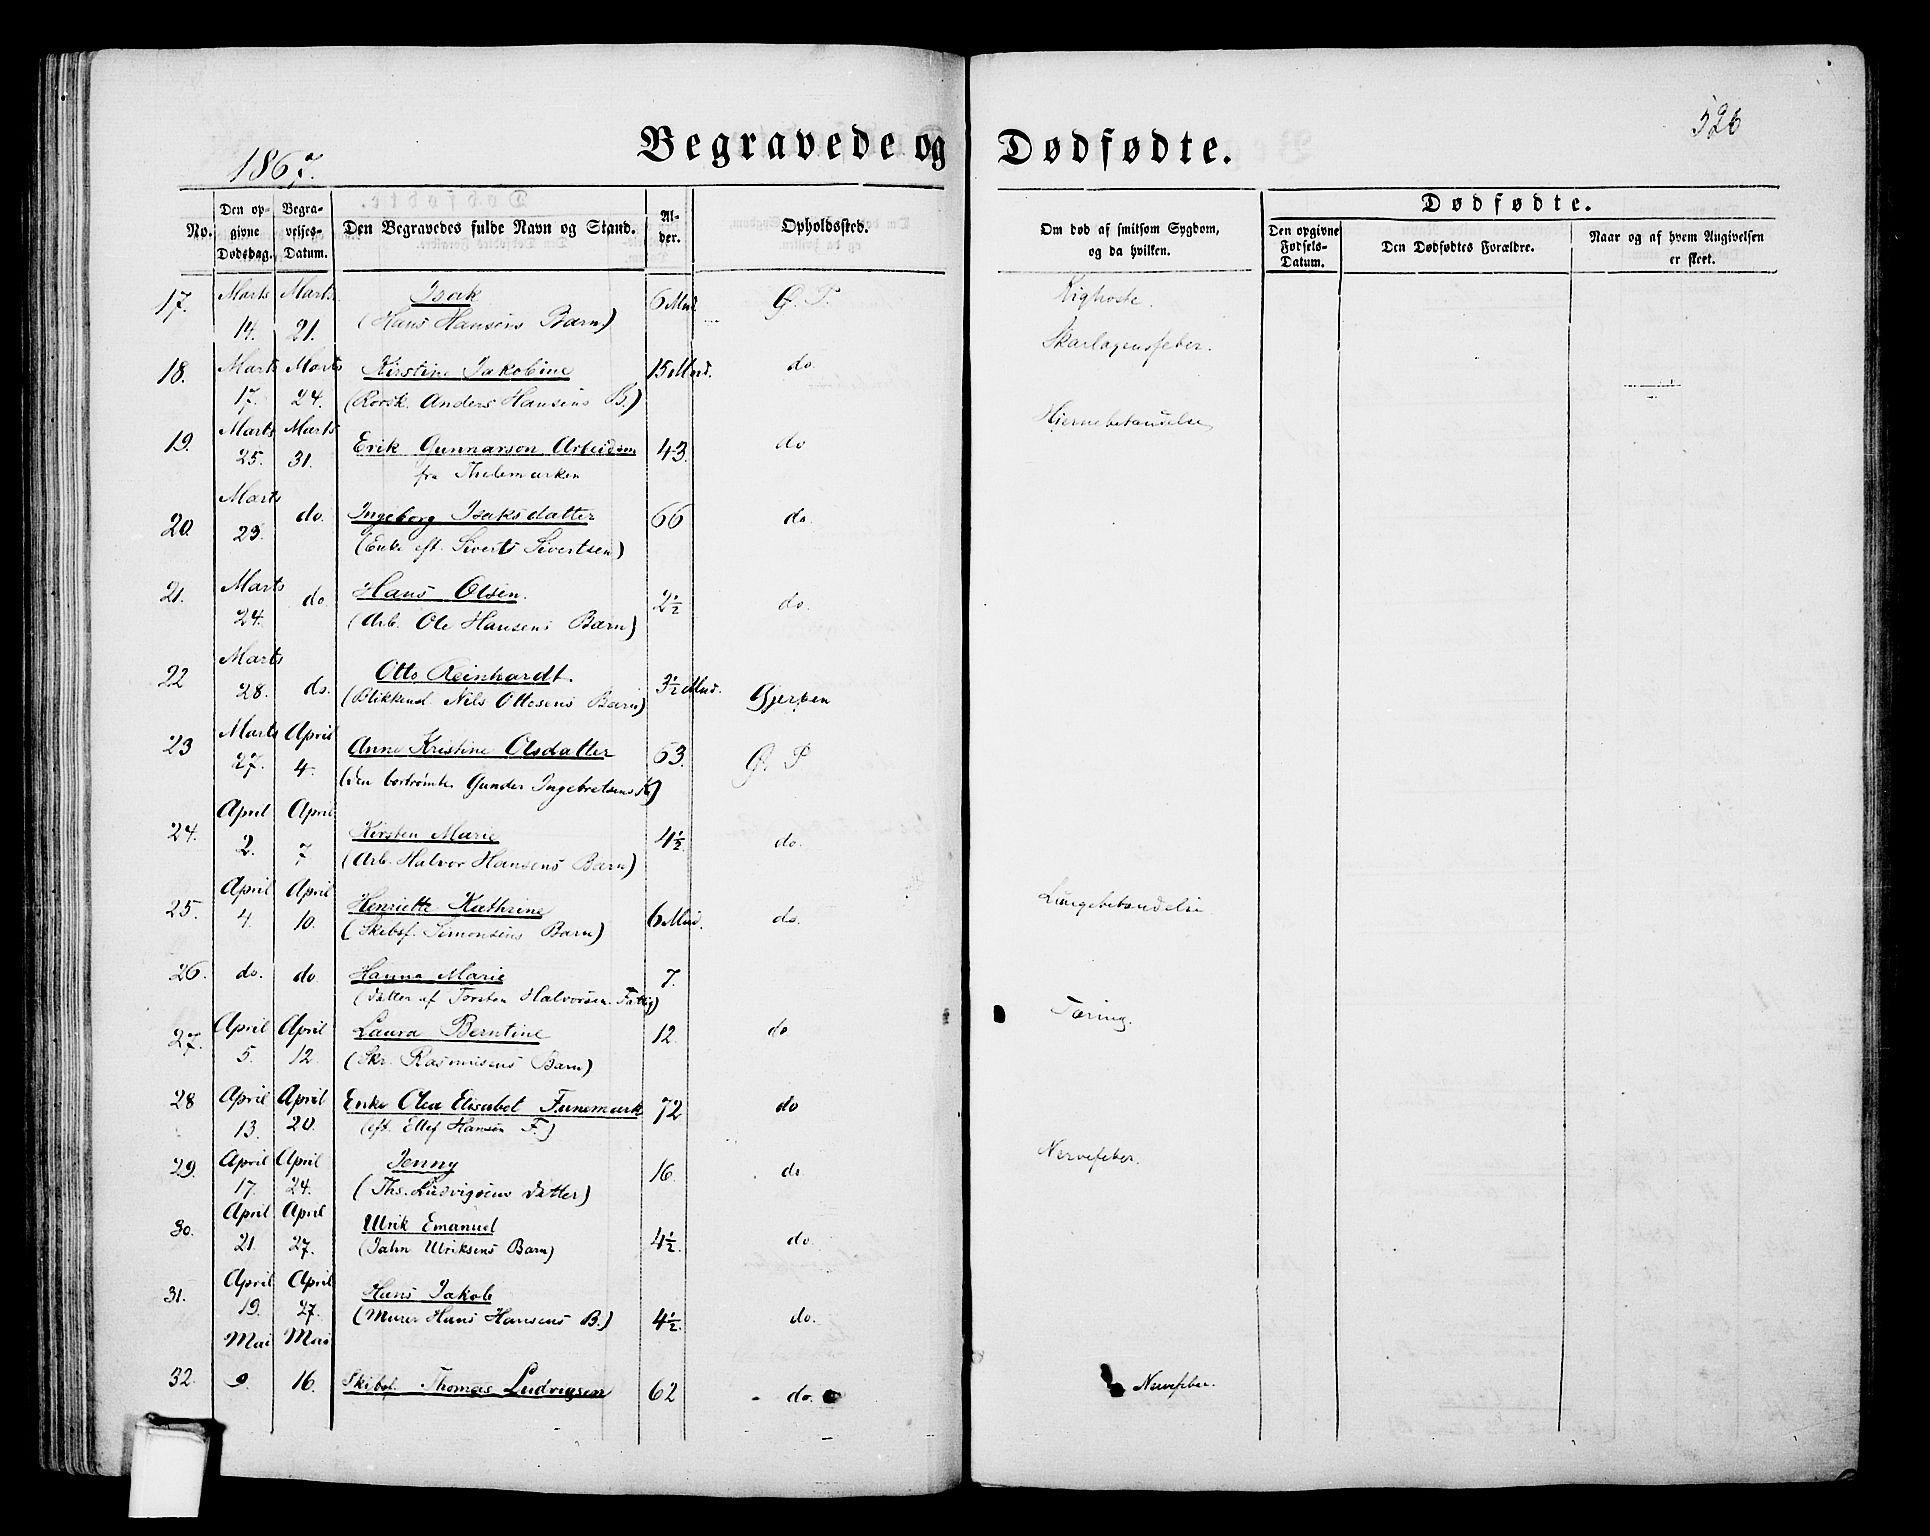 526
Begravede og Dødfødte.
1867.
No. Den opgivne Dødsdag. Begravelses-Datum. Den Begravedes fulde Navn og Stand. Alder. Opholdssted. Om død af smitsom Sygdom, og da hvilken. Den opgivne Fødsels-Datum. Den Dødfødtes Forældre. Naar og af hvem Angivelsen er skeet.
Dødfødte.
17. Marts 14. Marts 21. Isak 6 Mnd. G. P. Kighoste.
(Hans Hansens Barn)
Skarlagensfeber.
18. Marts 17. Marts 24. Kirstine Jakobine 15 Mnd. do.
(Rorsk. Anders Hansens B.)
Hjernebetændelse
19. Marts 25. Marts 31. Erik Gunnarson Arbeidsm 43. do
fra Thelemarken
20. Marts 23. do. Ingeborg Isaksdatter 66 do.
(Enke eft. Siverts Sivertsen)
21. Marts 24. do Hans Olsen. 2½ do.
(Arb. Ole Hansens Barn)
22 Marts 28. do. Otto Reinhardt. 3½ Mnd. Gjerpen
(Blikkensl Nils Ottosens Barn)
23 Marts 27. April 4. Anne Kristine Olsdatter 63. G. P
(den bortrømte Gunder Ingebretsens K)
24. April 2. April 7 Kirsten Marie 4½ do.
(Arb. Halvor Hansens Barn)
25. April 4. April 10. Henriette Kathrine 6 Mnd. do. Lungebetændelse
(Skibsf. Simonsens Barn)
26. do. do Hanna Marie 7.
(Datter af Torsten Halvorsen. Fattig)
27. April 5. April 12. Laura Berntine 12. do Tæring.
(Skr. Rasmusens Barn)
28 April 13. April 20. Enke Olea Elisabet Funnemark 72 do
(eft. Ellef Hansen F.)
29. April 17. April 24. Jenny 16. do Nervefeber.
(Ths. Ludvigsens Datter)
30. April 21. April 27. Ulrik Emanuel 4½. do.
(Jahn Ulriksens Barn)
31. April 19. April 27. Hans Jakob 4½. do.
(Murer Hans Hansens B.)
32. Mai 9. Mai 16. Skibst. Thomas Ludvigsen 62 do. Nervefeber.